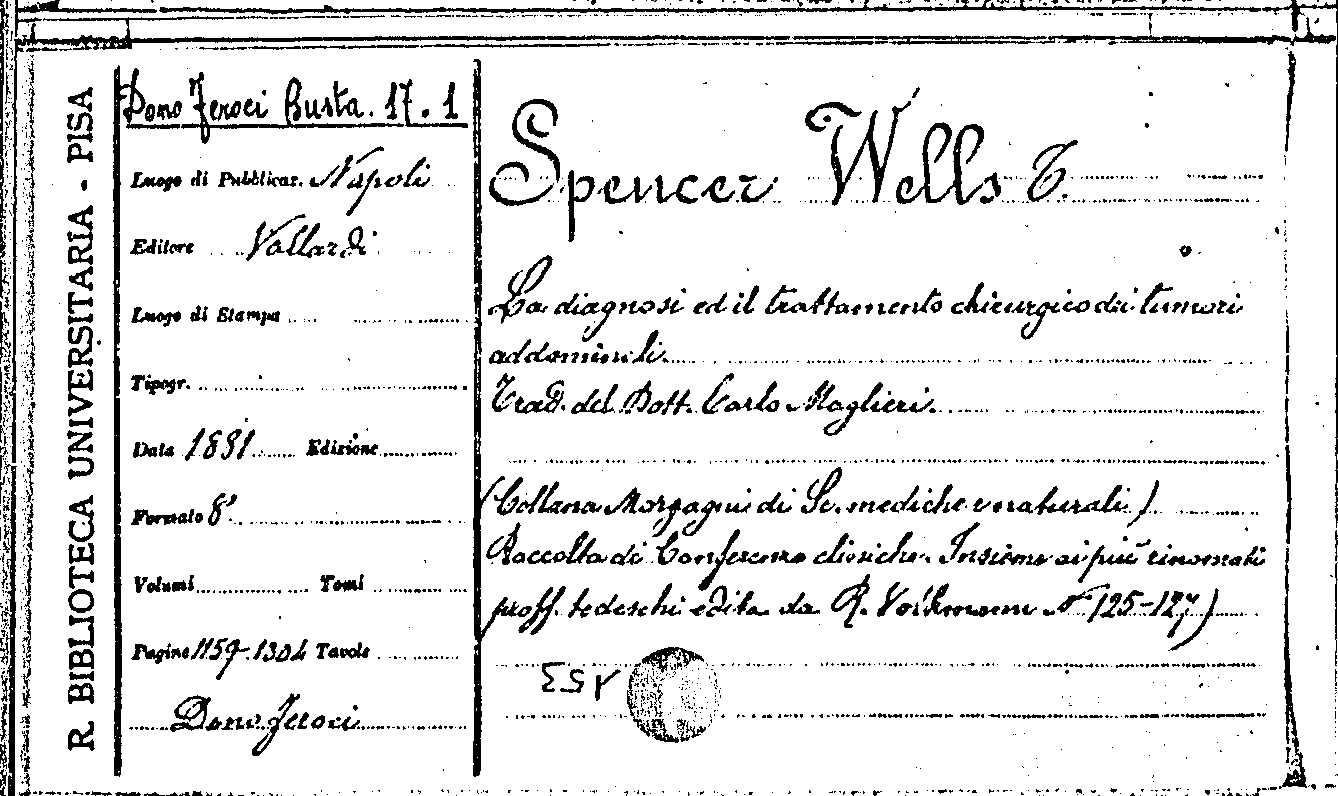 R. BIBLIOTECA UNIVERSITARIA - PISA
Dono Feroci Busta. 17. 1
Luogo di Pubblicaz. Napoli
Editore Vallardi
Luogo di Stampa
Tipogr.
Data 1881 Edizione
Formato 8°
Volumi Tomi
Pagine 1159-1304 Tavole
Dono Feroci
Spencer Wells T.
La diagnosi ed il trattamento chirurgico dei tumori
addominali.
Trad. del Dott. Carlo Maglieri.
(Collana Morgagni di Sc. mediche e naturali)
Raccolta di Conferenze cliniche. Insieme ai più rinomati
proff. tedeschi edita da R. Volkmann N° 125-127)
153